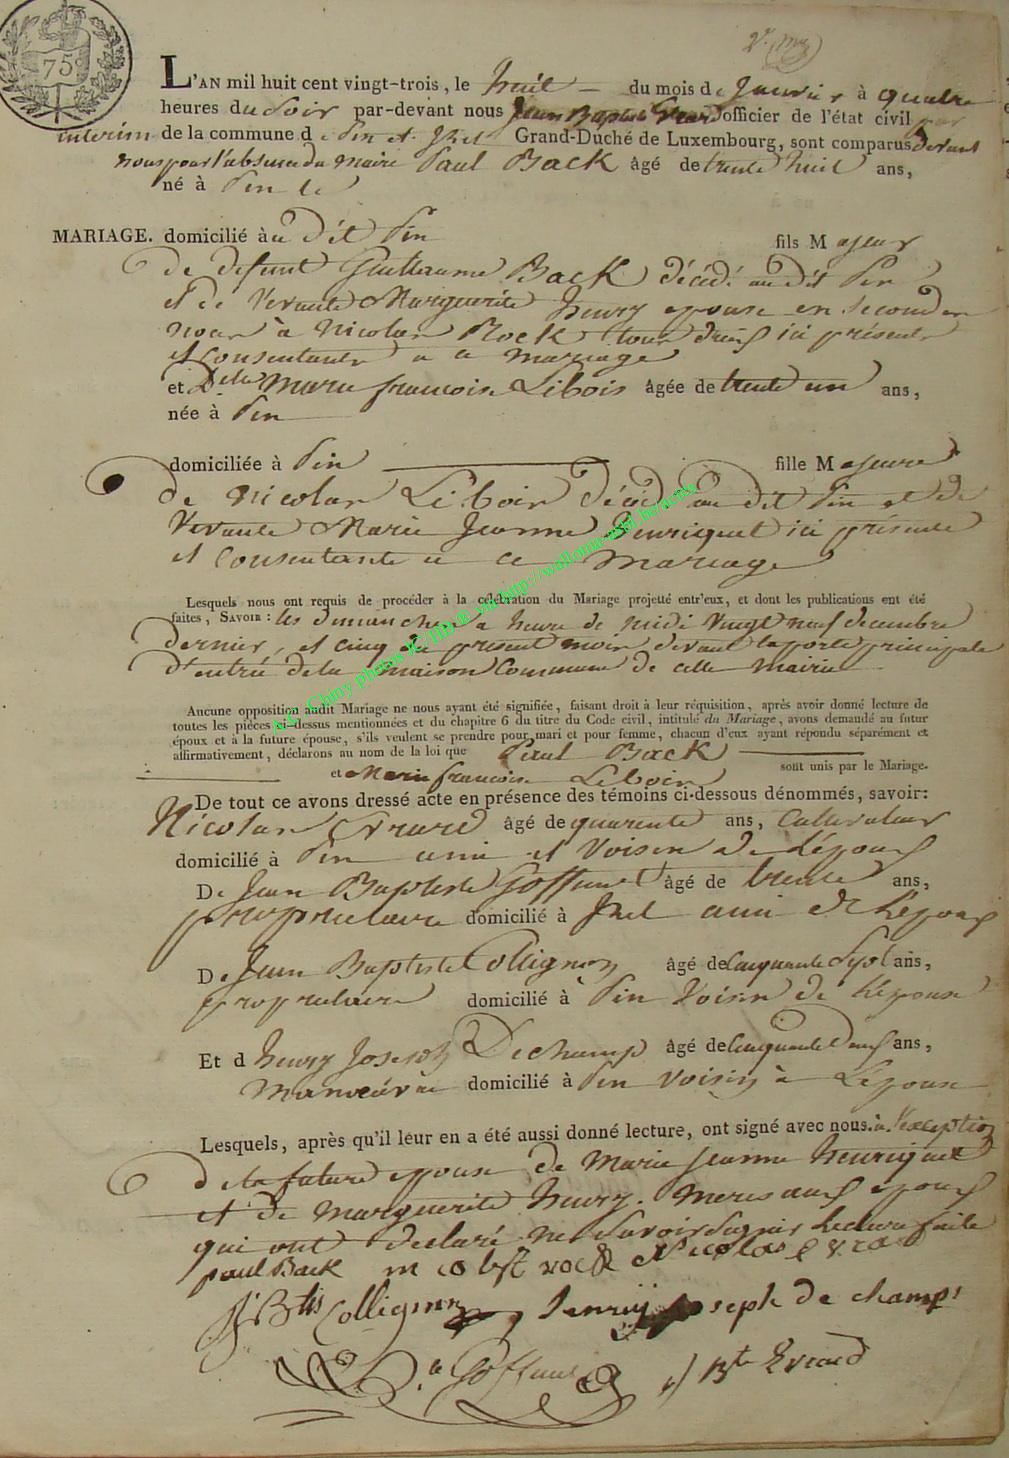 75c
L'AN mil huit cent vingt-trois, le huit du mois de Janvier à quatre
heures du Soir par-devant nous Jean Baptiste Evrard officier de l'état civil par
interim de la commune de Pin et Izel Grand-Duché de Luxembourg, sont comparus Devant
nous pour l'absence du maire Paul Back âgé de trente huit ans,
né à Pin le
MARIAGE. domicilié au Dit Pin fils Majeur
de defunt Guillaume Back décédé au dit Pin
et de Vivante Marguerite henry epouse en Secondes
noces à Nicolas Rock tous deux ici présents
et Consentants a ce mariage
et Delle Marie francoise Lebois âgée de trente un ans,
née à Pin
domiciliée à Pin fille Majeure
de Nicolas Leboir décédé au dit Pin et de
Vivante Marie Jeanne henriquet ici présente
et Consentante a ce Mariage
Lesquels nous ont requis de procéder à la célébration du Mariage projetté entr'eux, et dont les publications ont été
faites, SAVOIR : les dimanches a heure de midi Vingt neuf decembre
dernier, et cinq du présent mois devant la porte principale
d'entrée de la maison Commune de cette Mairie
Aucune opposition audit Mariage ne nous ayant été signifiée, faisant droit à leur réquisition, après avoir donné lecture de
toutes les pièces ci-dessus mentionnées et du chapitre 6 du titre du Code civil, intitulé du Mariage, avons demandé au futur
époux et à la future épouse, s'ils veulent se prendre pour mari et pour femme, chacun d'eux ayant répondu séparément et
affirmativement, déclarons au nom de la loi que Paul Back
et Marie francoise Leboir sont unis par le Mariage.
De tout ce avons dressé acte en présence des témoins ci-dessous dénommés, savoir:
Nicolas Evrard âgé de quarente ans, Cultivateur
domicilié à Pin ami et Voisin de L'épous
De Jean Baptiste Goffinet âgé de trente ans,
proprietaire domicilié à Izel ami de L'epous
De Jean Baptiste Collignon âgé de Cinquante Sept ans,
proprietaire domicilié à Pin Voisin de l'épouse
Et d henry Joseph Dechamp âgé de Cinquante Deux ans,
Manoeuvre domicilié à Pin Voisin à L'épouse
Lesquels, après qu'il leur en a été aussi donné lecture, ont signé avec nous. à l'exception
de la future epouse de Marie Jeanne henriquet
et de Marguerite henry. Meres aux epous
qui ont declaré ne Savoir Signer Lecture faite
paul Back nicolas rock Nicolas evrard
J Btis Collignon henrij joseph de champs
Goffinet J Bte Evrard
A.G. Chiny photos JC/HB © via http://wallonia-asbl.be/actes